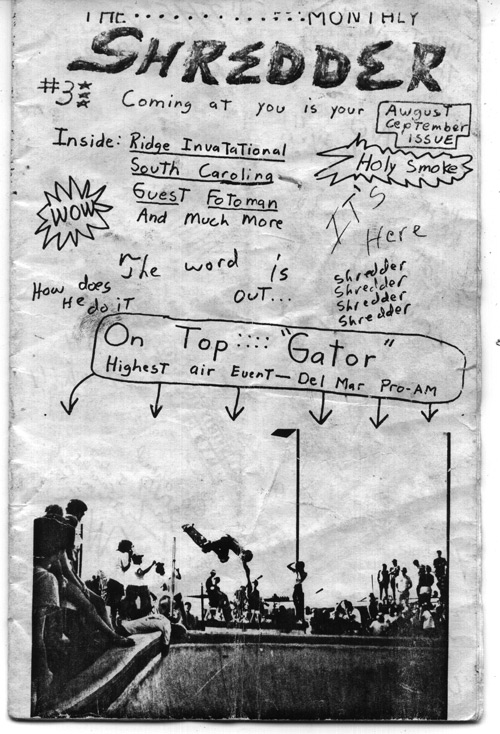 THE ............:::MONTHLY
SHREDDER
#3
Coming at you is your
Awgust
Ceptember
issue
Inside: Ridge InvaTational
South Carolina
Guest Fotoman
And Much More
Holy Smoke
WOW
IT'S
Here
The word is
out...
How does
He
do iT
Shredder
Shredder
Shredder
Shredder
On Top :::: "Gator"
Highest air Event— Del Mar Pro-AM